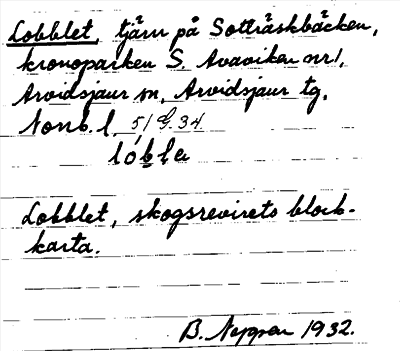 Lobblet, tjärn på Sotträskbäcken,
kronoparken S. Avaviken nr 1,
Arvidsjaur sn, Arvidsjaur tg,
Nonb. l. 51 G. 34
lóbla
Lobblet, skogsrevirets block-
karta.
B. Nygren 1932.